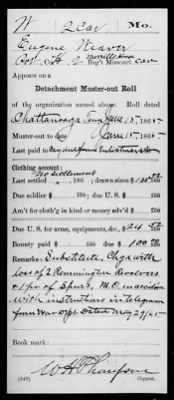 W 2 Cav Mo.
Eugene Weaver
Pvt, Co. H, 2 Reg't Missouri Cav
Appears on a
Detachment Muster-out Roll
of the organization named above. Roll dated
Chattanooga Tenn June 15, 1865.
Muster-out to date June 15, 1865.
Last paid to
Clothing account: No settlement
Last settled , 186 ; drawn since $ 100
Due soldier $ 100; due U. S. $ 100
Am't for cloth'g in kind or money adv'd $ 100
Due U. S. for arms, equipments, &c., $24 100
Bounty paid $ 100; due $ 100 100
Remarks: Substitute, Chgd with
loss of 2 Remmington Revolvers
& 1 pr of Spurs. M.O. in accordance
with instructions in telegram
from War Dept Dated May 29/65
Book mark:
W H Thompson
(949) Copyist.